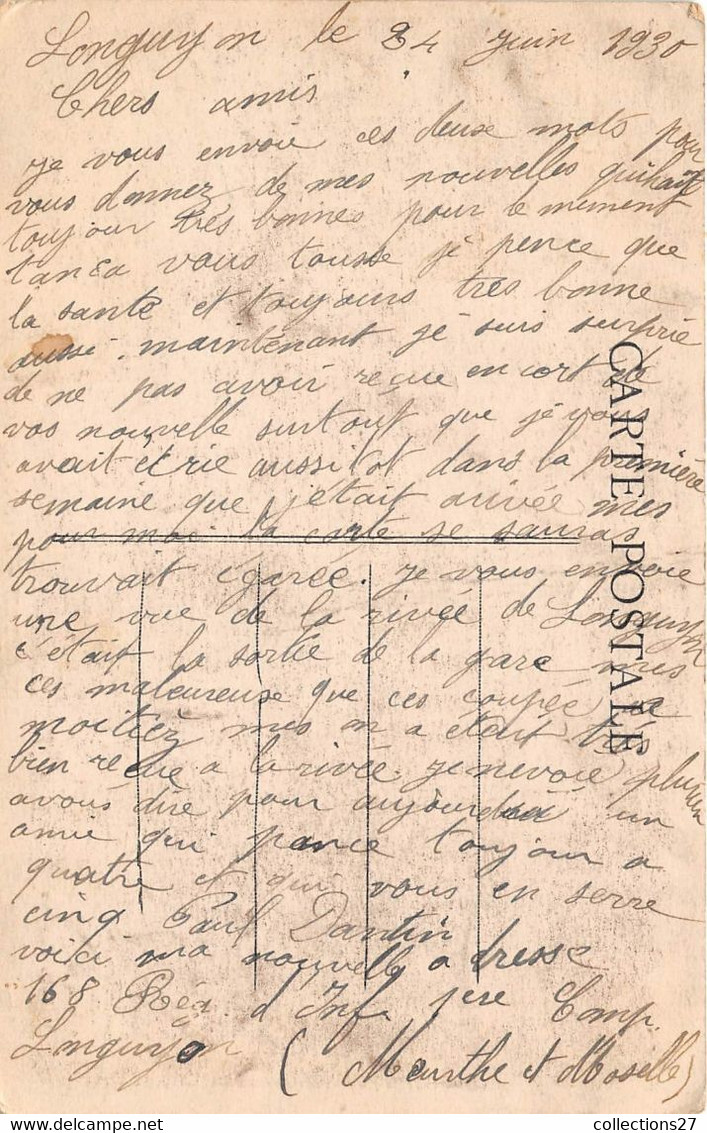 Longuyon le 24 juin 1930
Chers amis
je vous envoie ces deux mots pour
vous donnez de mes nouvelles qui
toujour très bonnes pour le mument
tansa vous tousse je pence que
la santé et toujours très bonne
aussi. maintenant je suis surprie
de ne pas avoir reçue encort de
vos nouvelle surtout que je vous
avait étrie aussitot dans la première
semaine que j'était arivée mes
pour moi la carte se sauras
trouvait égarée. je vous envoie
une vue de la rivée de Longuyon
c'était la sortie de la gare mes
ces maleureuse que ces coupée a
moitiéz mes on a était très
bien reçue a la rivée. je nevoie plurien
avous dire pour aujourdui un
amie qui pance toujour a
quatre et qui vous en serre
cinq Paul Dantin
voici ma nouvelle adresse
168 Rég. d'Infe 1ere Comp.
Longuyon (Meurthe et Moselle)
CARTE POSTALE
collections27